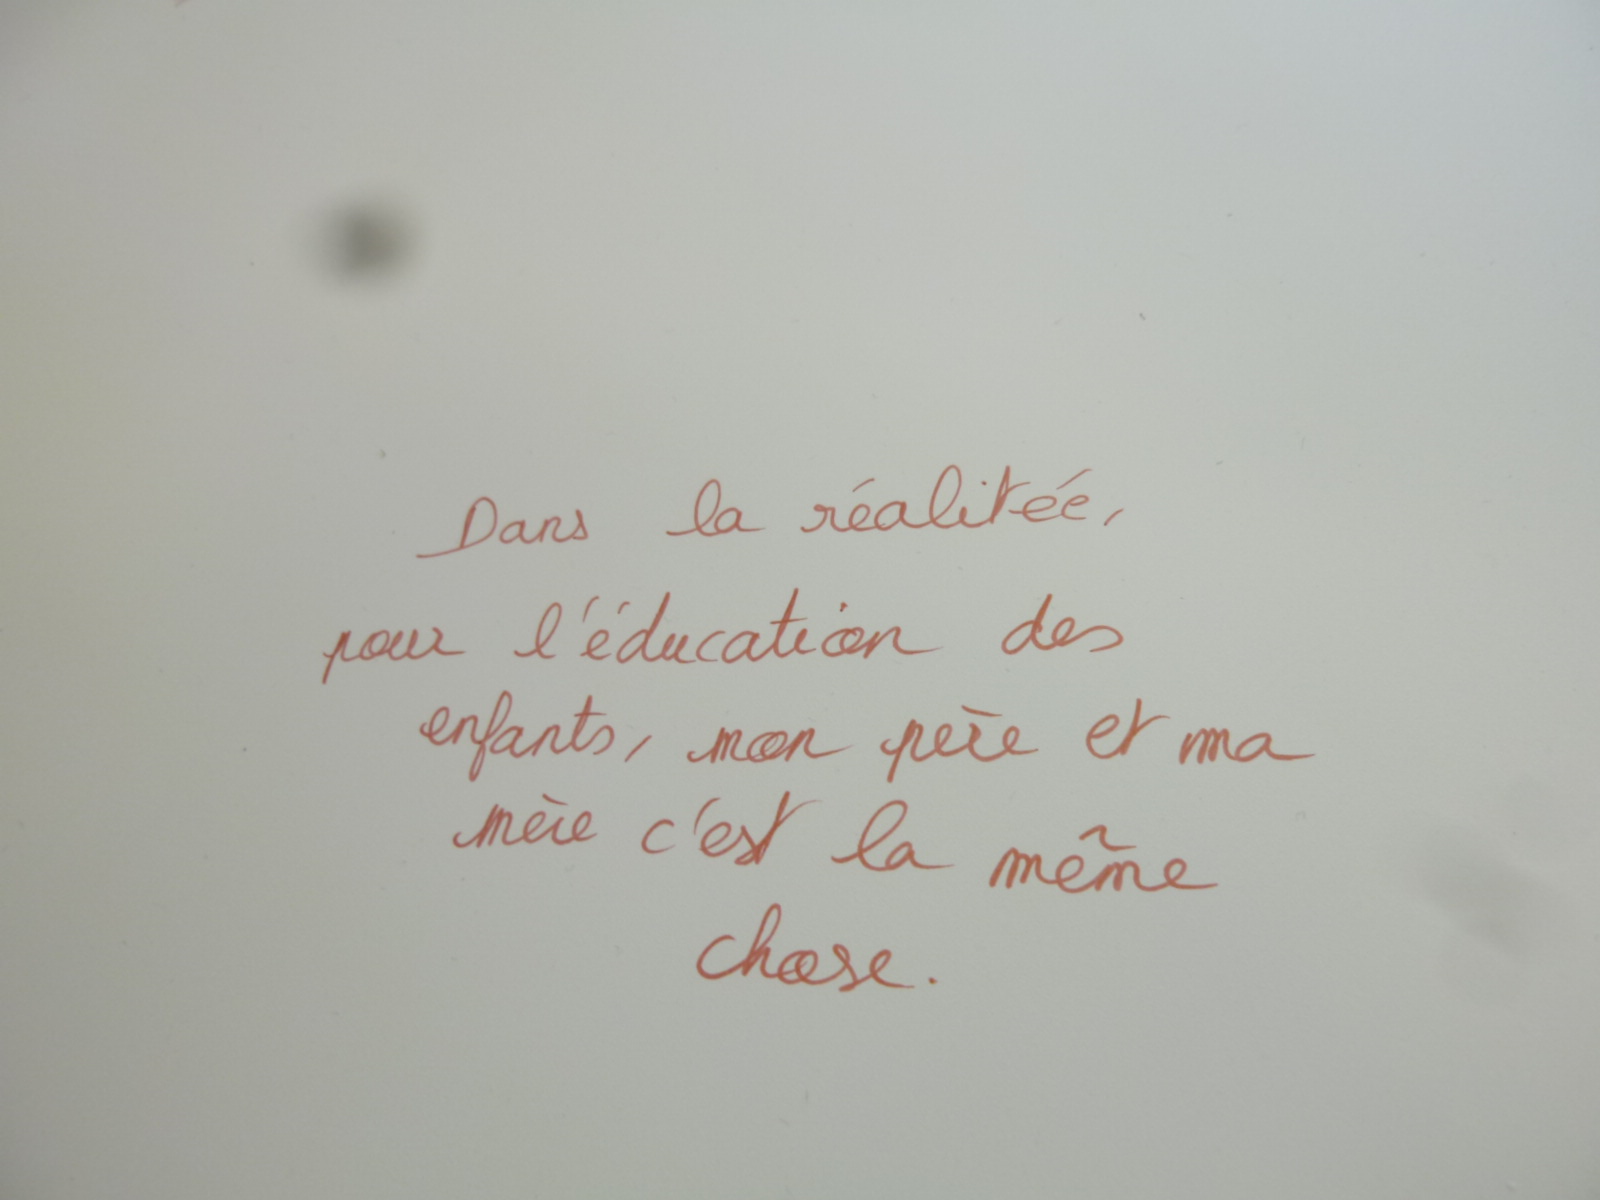 Dans la réalitée,
pour l'éducation des
enfants, mon père et ma
mère c'est la même
chose.